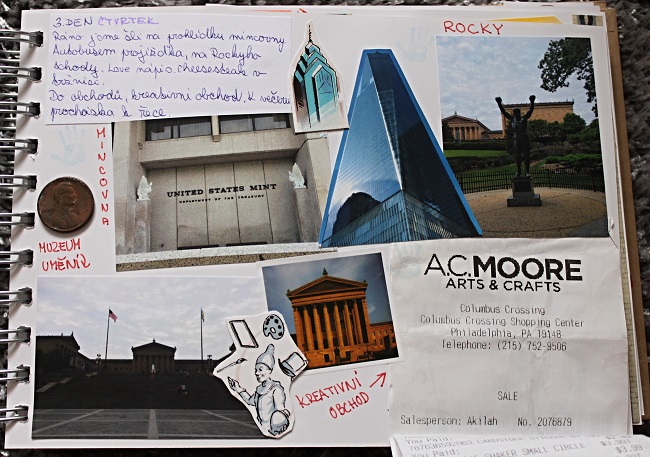 3. DEN ČTVRTEK
Ráno jsme šli na prohlídku mincovny
Autobusem projížďka, na Rockyho
schody. Love nápis, cheesesteak v
tržnici.
Do obchodů, kreativní obchod. K večeru
procházka k řece.
MINCOVNA
UNITED STATES MINT
DEPARTMENT OF THE TREASURY
ROCKY
MUZEUM
UMĚNÍ
KREATIVNÍ
OBCHOD
A.C.MOORE
ARTS & CRAFTS
Columbus Crossing
Columbus Crossing Shopping Center
Philadelphia, PA 19148
Telephone: (215) 752-9506
SALE
Salesperson: Akilah No. 2076879
You Paid:
SHAKER SMALL CIRCLE
You Paid:
$3.99